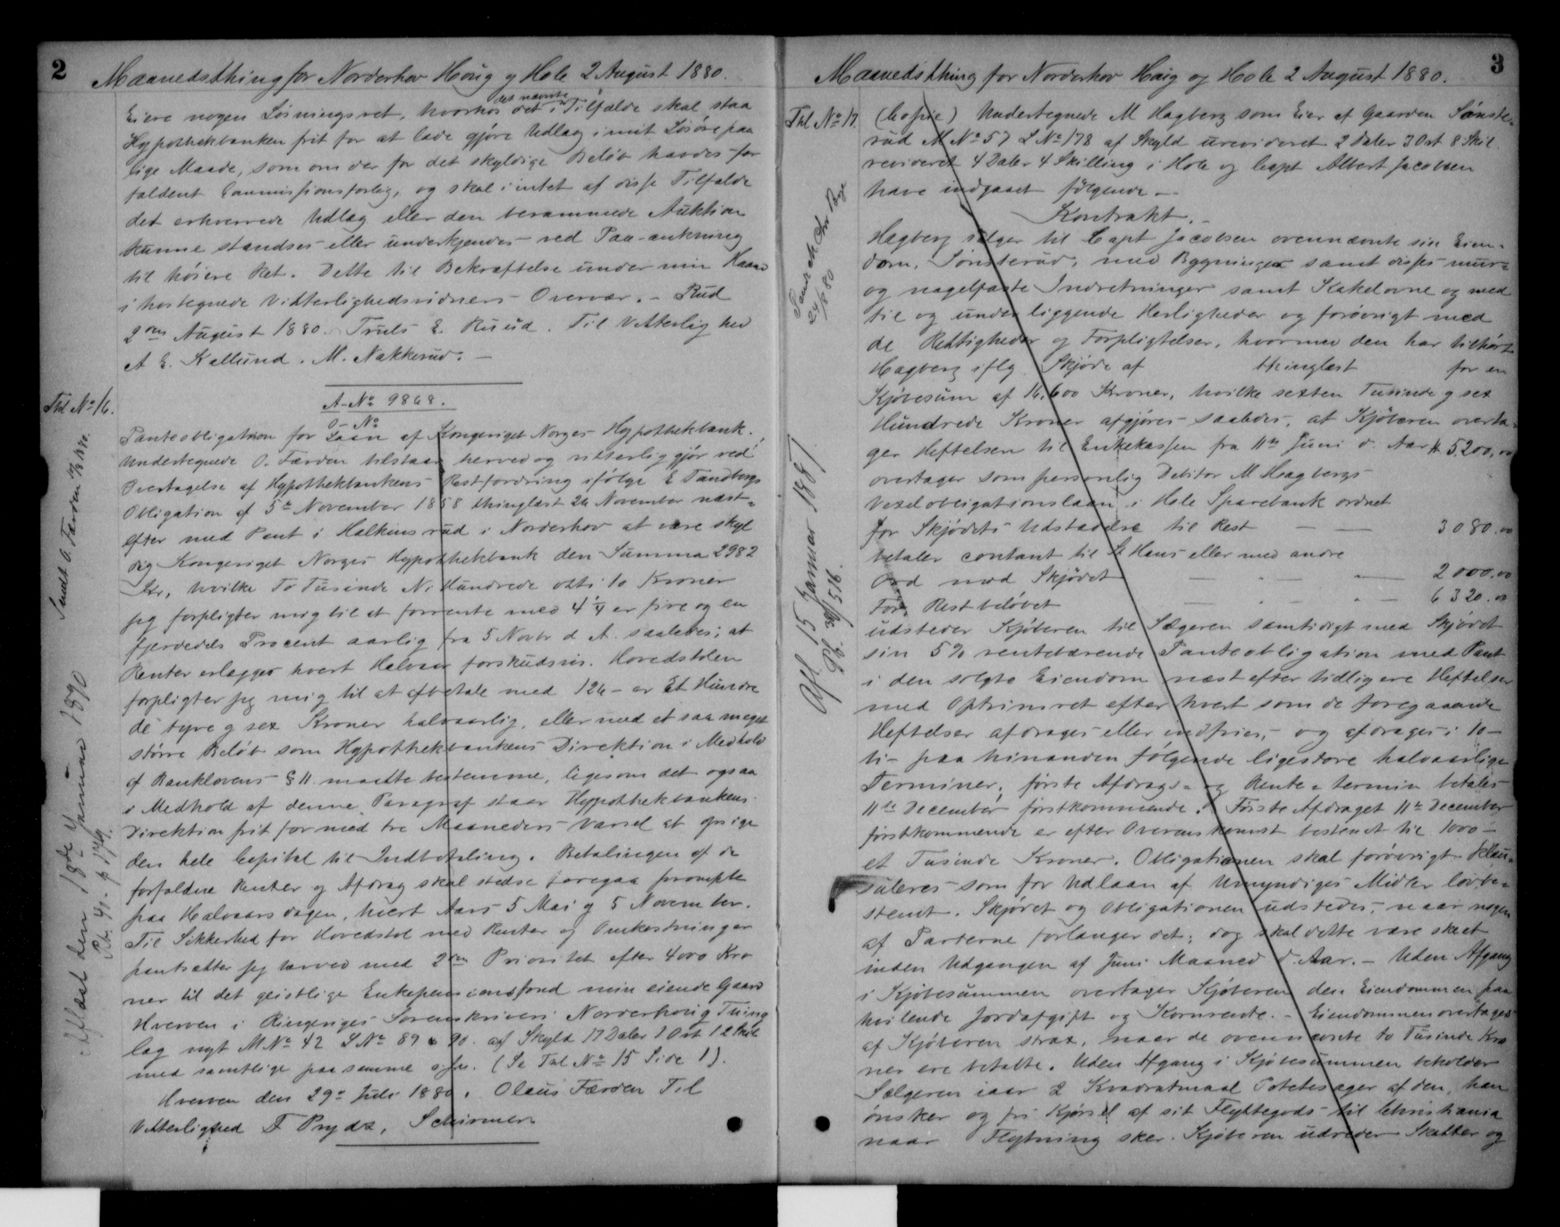 2
Maanedsthing for Norderhov Houg og Hole 2 August 1880.
Eiere nogen Løsningsret, hvorhos det i det nævnte Tilfælde skal staa
Hypothekbanken frit for at lade gjøre Udlag i mit Løsøre paa
lige Maade, som om der for det skyldige Beløb havdes for
faldent Commissionsforlig, og skal i intet af disse Tilfælde
det erhvervede Udlæg eller den berammede Auktion
kunne standses eller underkjendes ved Paa-ankning
til høiere Ret. Dette til Bekræftelse under min Haand
i hostegnede Vitterlighedsvidners Overvær. - Rud
2den August 1880. Truls E. Ruud. Til Vitterlighed
A E. Kallund. M. Nakkerud. -
Thl No 16.
A-No 9868.
O-No
Panteobligation for Laan af Kongeriget Norges Hypothekbank.
Undertegnede O. Færden tilstaar herved og vitterliggjør ved
Overtagelse af Hypothekbankens Restfordring ifølge E Tandbergs
Obligation af 5te November 1858 thinglæst 24 November næst-
efter med Pant i Halkensrud i Norderhov at være skyl
dig Kongeriget Norges Hypothekbank den Summa 2982
Kr, hvilke To Tusinde Ni Hundrede otti to Kroner
jeg forpligter mig til at forrente med 4 1/4 er fire og en
fjerdedels Procent aarlig fra 5 Novbr d A. saaledes; at
Renter erlægges hvert Halvaar forskudsvis. Hovedstolen
forpligter jeg mig til at afbetale med 126 - er Et Hundre
de tyve og sex Kroner halvaarlig, eller med et saa meget
større Beløb som Hypothekbankens Direktion i Medhold
af Banklovens § 11 maatte bestemme, ligesom det ogsaa
i Medhold af denne Paragraf staar Hypothekbankens
Direktion frit for med tre Maaneders Varsel at opsige
den hele Capital til Indbetaling. Betalingen af de
forfaldne Renter og Afdrag skal stedse foregaa prompte
paa Halvaarsdagen, hvert Aars 5 Mai og 5 November.
Til Sikkerhed for Hovedstol med Renter og Omkostninger
pantsætter jeg herved med 2den Prioritet efter 4000 Kro
ner til det geistlige Enkepensionsfond min eiende Gaard
Hverven i Ringeriges Sorenskriveri Norderhovig Thing
lag nyt M No 42 L No 89 & 90. af Skyld 17 Daler 1 Ort 12 Skil
med samtlige paa samme o.s.v. (Se Thl No 15 Side 1).
Hverven den 29de Juli 1880. Olaus Færden Til
Vitterlighed T Prydz, Schirmer.
Sendt O. Færden
Aflæst den 18de Januar 1890
3
Maanedsthing for Norderhov Houg og Hole 2 August 1880.
Thl No 17.
(Copie) Undertegnede M Hagberg som Eier af Gaarden Sønste-
rud M No 57 L No 178 af Skyld urevideret 2 Daler 3 Ort 8 Skil
revideret 4 Daler 4 Skilling i Hole og Capt Albert Jacobsen
have indgaaet følgende -
Kontrakt. -
Hagberg sælger til Capt Jacobsen ovennævnte sin Eien-
dom, Sønsterud, med Bygninger samt disses mur-
og nagelfaste Indretninger samt Kakelovne og med
til og underliggende Herligheder og forøvrigt med
de Rettigheder og Forpligtelser, hvormed den har tilhørt
Hagberg iflg. Skjøde af thinglæst for en
Kjøbesum af 16,600 Kroner, hvilke sexten Tusinde og sex
Hundrede Kroner afgjøres saaledes, at Kjøberen overta-
ger Heftelsen til Enkekassen fra 11te Juni d. Aar Kr 5200,00
overtager som personlig Debitor M Hagbergs
Vexelobligationslaan i Hole Sparebank ordnet
for Skjødets Udstædelse til Rest - - 3080.00
betaler contant til St Hans eller med andre
Ord mod Skjødet - - - 2000.00
For Restbeløbet - - - 6320.00
udsteder Kjøberen til Sælgeren samtidigt med Skjødet
sin 5 % rentebærende Panteobligation med Pant
i den solgte Eiendom næst efter tidligere Heftelser
med Optrinsret efter hvert som de foregaaende
Heftelser afdrages eller indfries, og afdrages i 10 -
ti - paa hinanden følgende ligestore halvaarlige
Terminer, første Afdrags- og Rente-termin betales
11te December førstkommende. Første Afdraget 11te December
førstkommende er efter Overenskomst bestemt til 1000 -
et Tusinde Kroner. Obligationen skal forøvrigt klau-
suleres som for Udlaan af Umyndiges Midler lovbe-
stemt. Skjødet og Obligationen udstedes, naar nogen
af Parterne forlanger det, dog skal dette være skeet
inden Udgangen af Juni Maaned d. Aar. - Uden Afgang
i Kjøbesummen overtager Kjøberen den Eiendommen paa
hvilende Jordafgift og Kornrente. - Eiendommen overtages
af Kjøberen strax, naar de ovennævnte to Tusinde Kro
ner ere betalte. Uden Afgang i Kjøbesummen beholder
Sælgeren iaar 2 Kvadratmaal Potetesager af den, han
ønsker og fri Kjørsel af sit Flyttegods til Christiania
naar Flytning sker. Kjøberen udreder Skatter og
24/8 80
Afl 15 Januar 1887